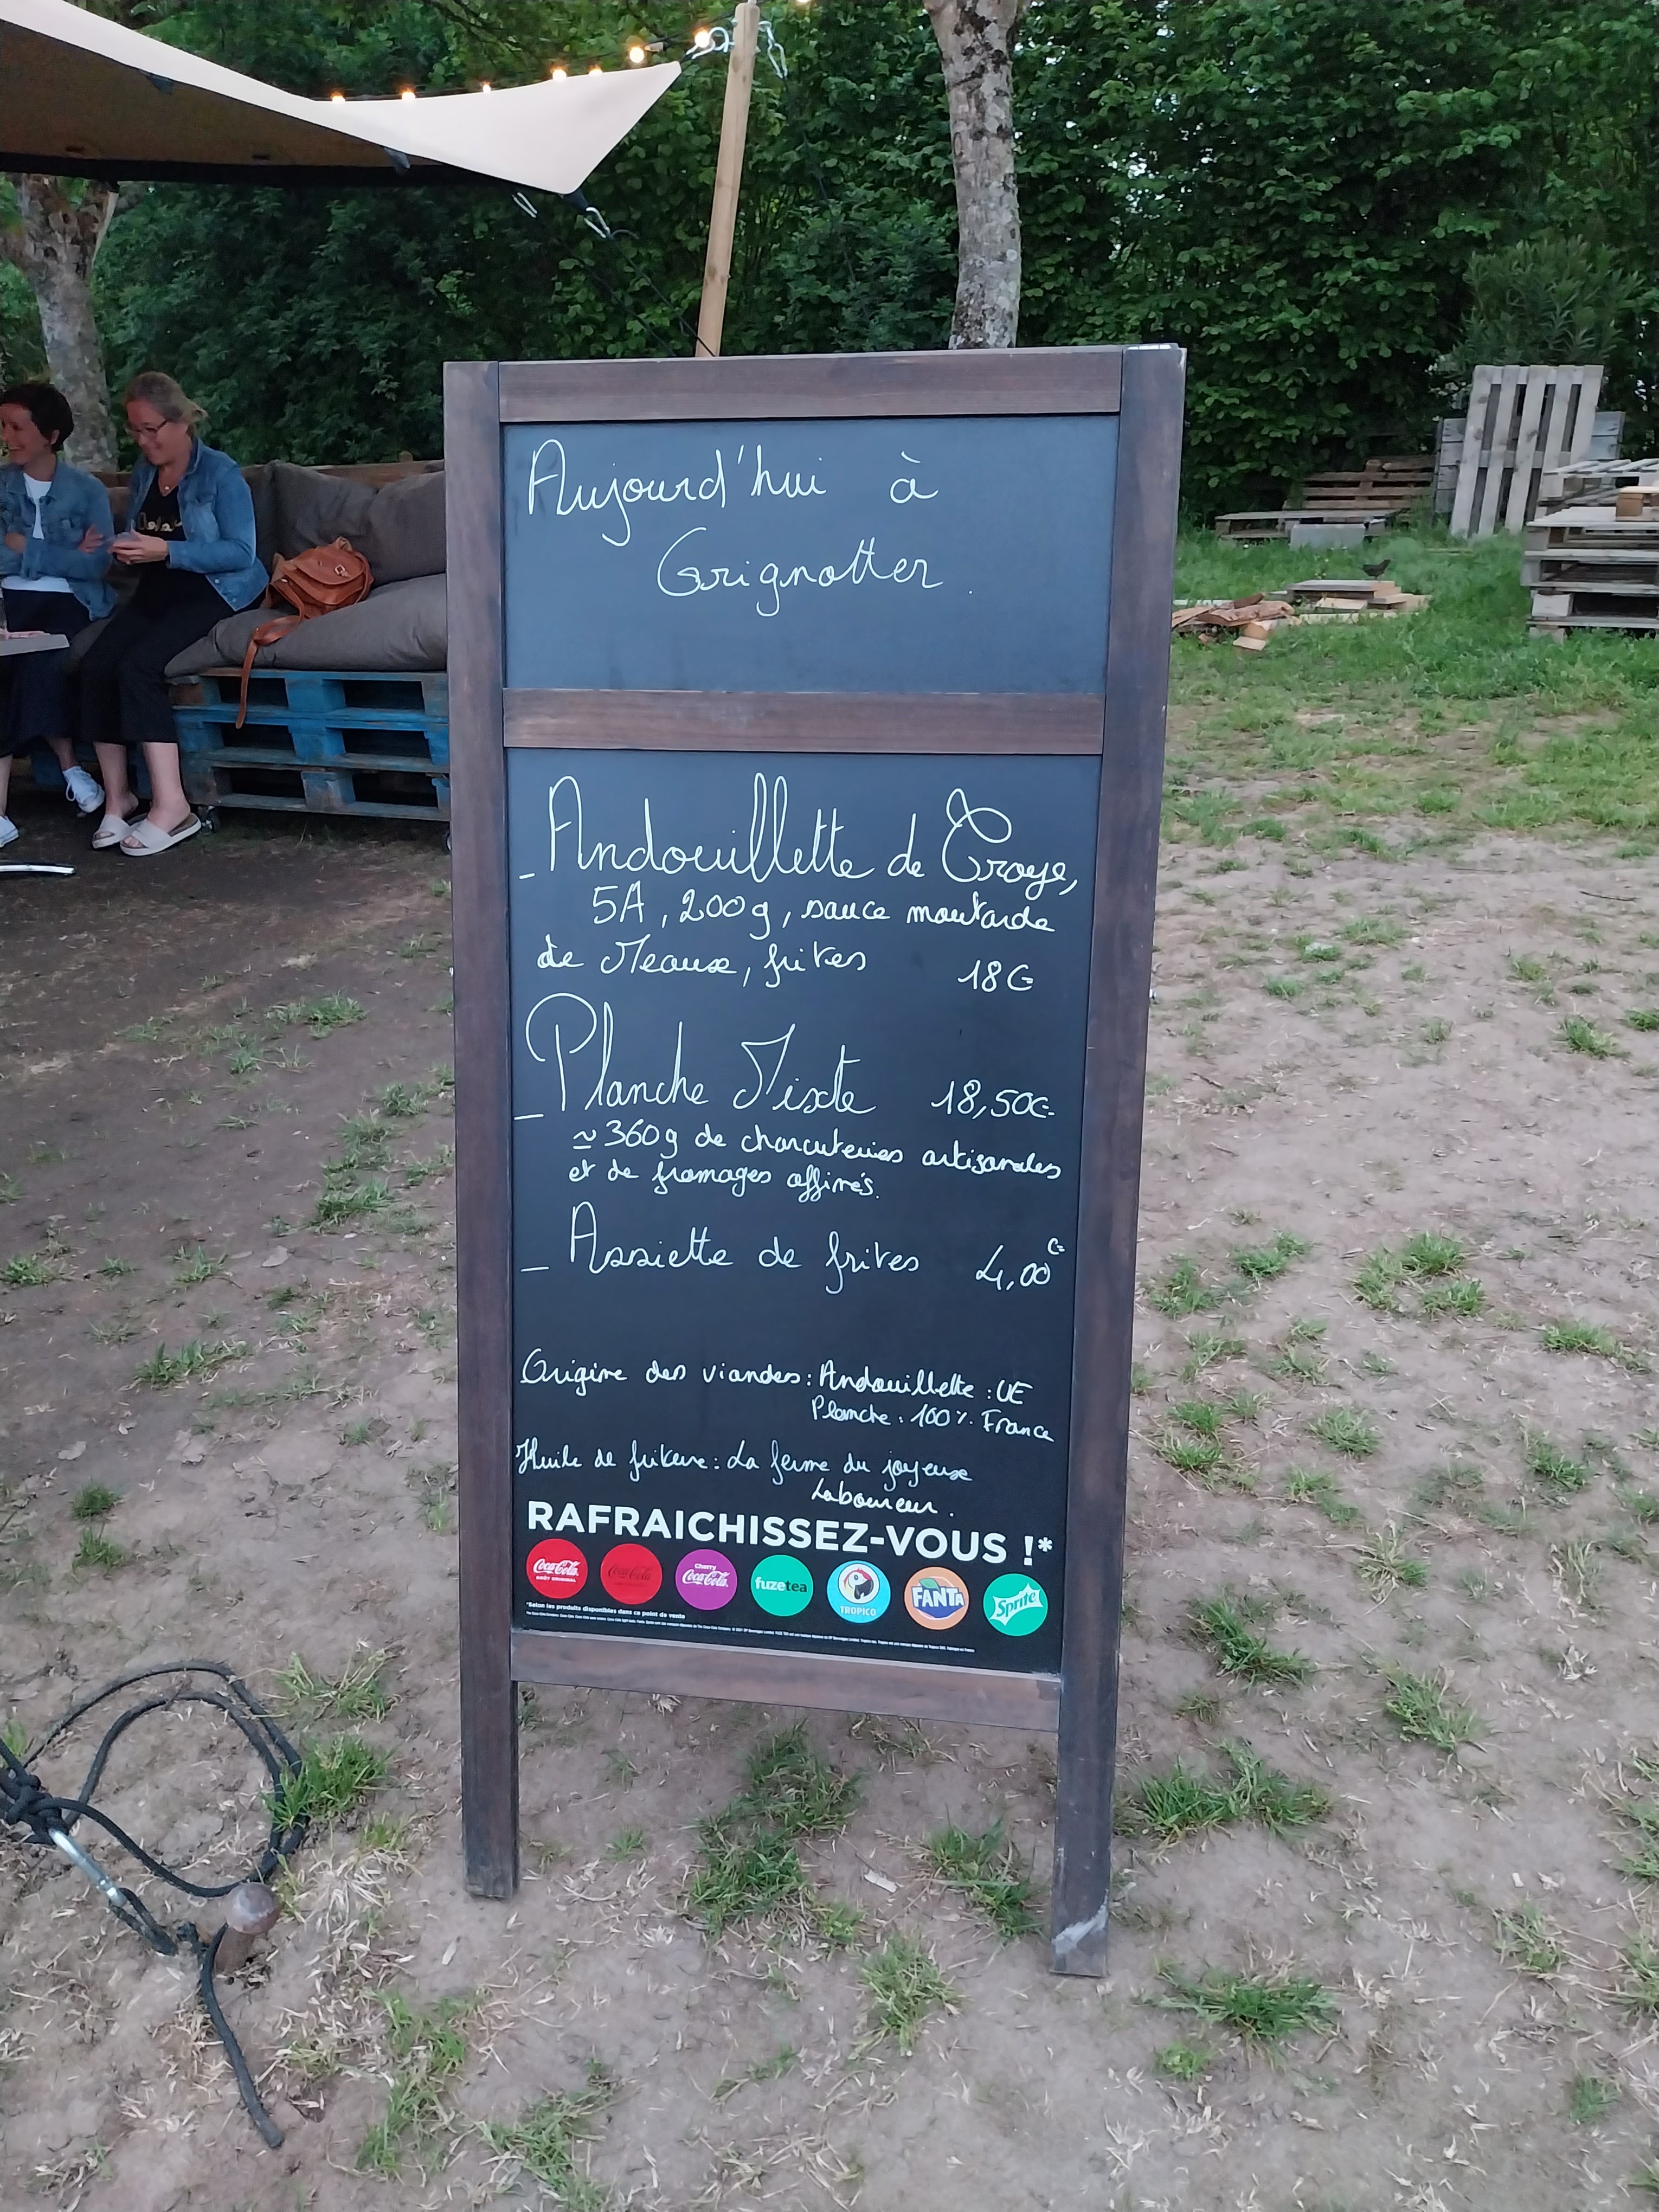 Aujourd'hui à
Grignotter.
- Andouillette de Troye,
5A, 200g, sauce moutarde
de Meaux, frites 18€
- Planche Mixte 18,50€
≃ 360g de charcuteries artisanales
et de fromages affinés.
- Assiette de frites 4,00€
Origine des viandes : Andouillette : UE
Planche : 100% France
Huile de friture : La ferme du joyeux
Laboureur.
RAFRAICHISSEZ-VOUS !*
Coca-Cola GOÛT ORIGINAL Coca-Cola Cherry Coca-Cola fuzetea TROPICO FANTA Sprite
*Selon les produits disponibles dans ce point de vente